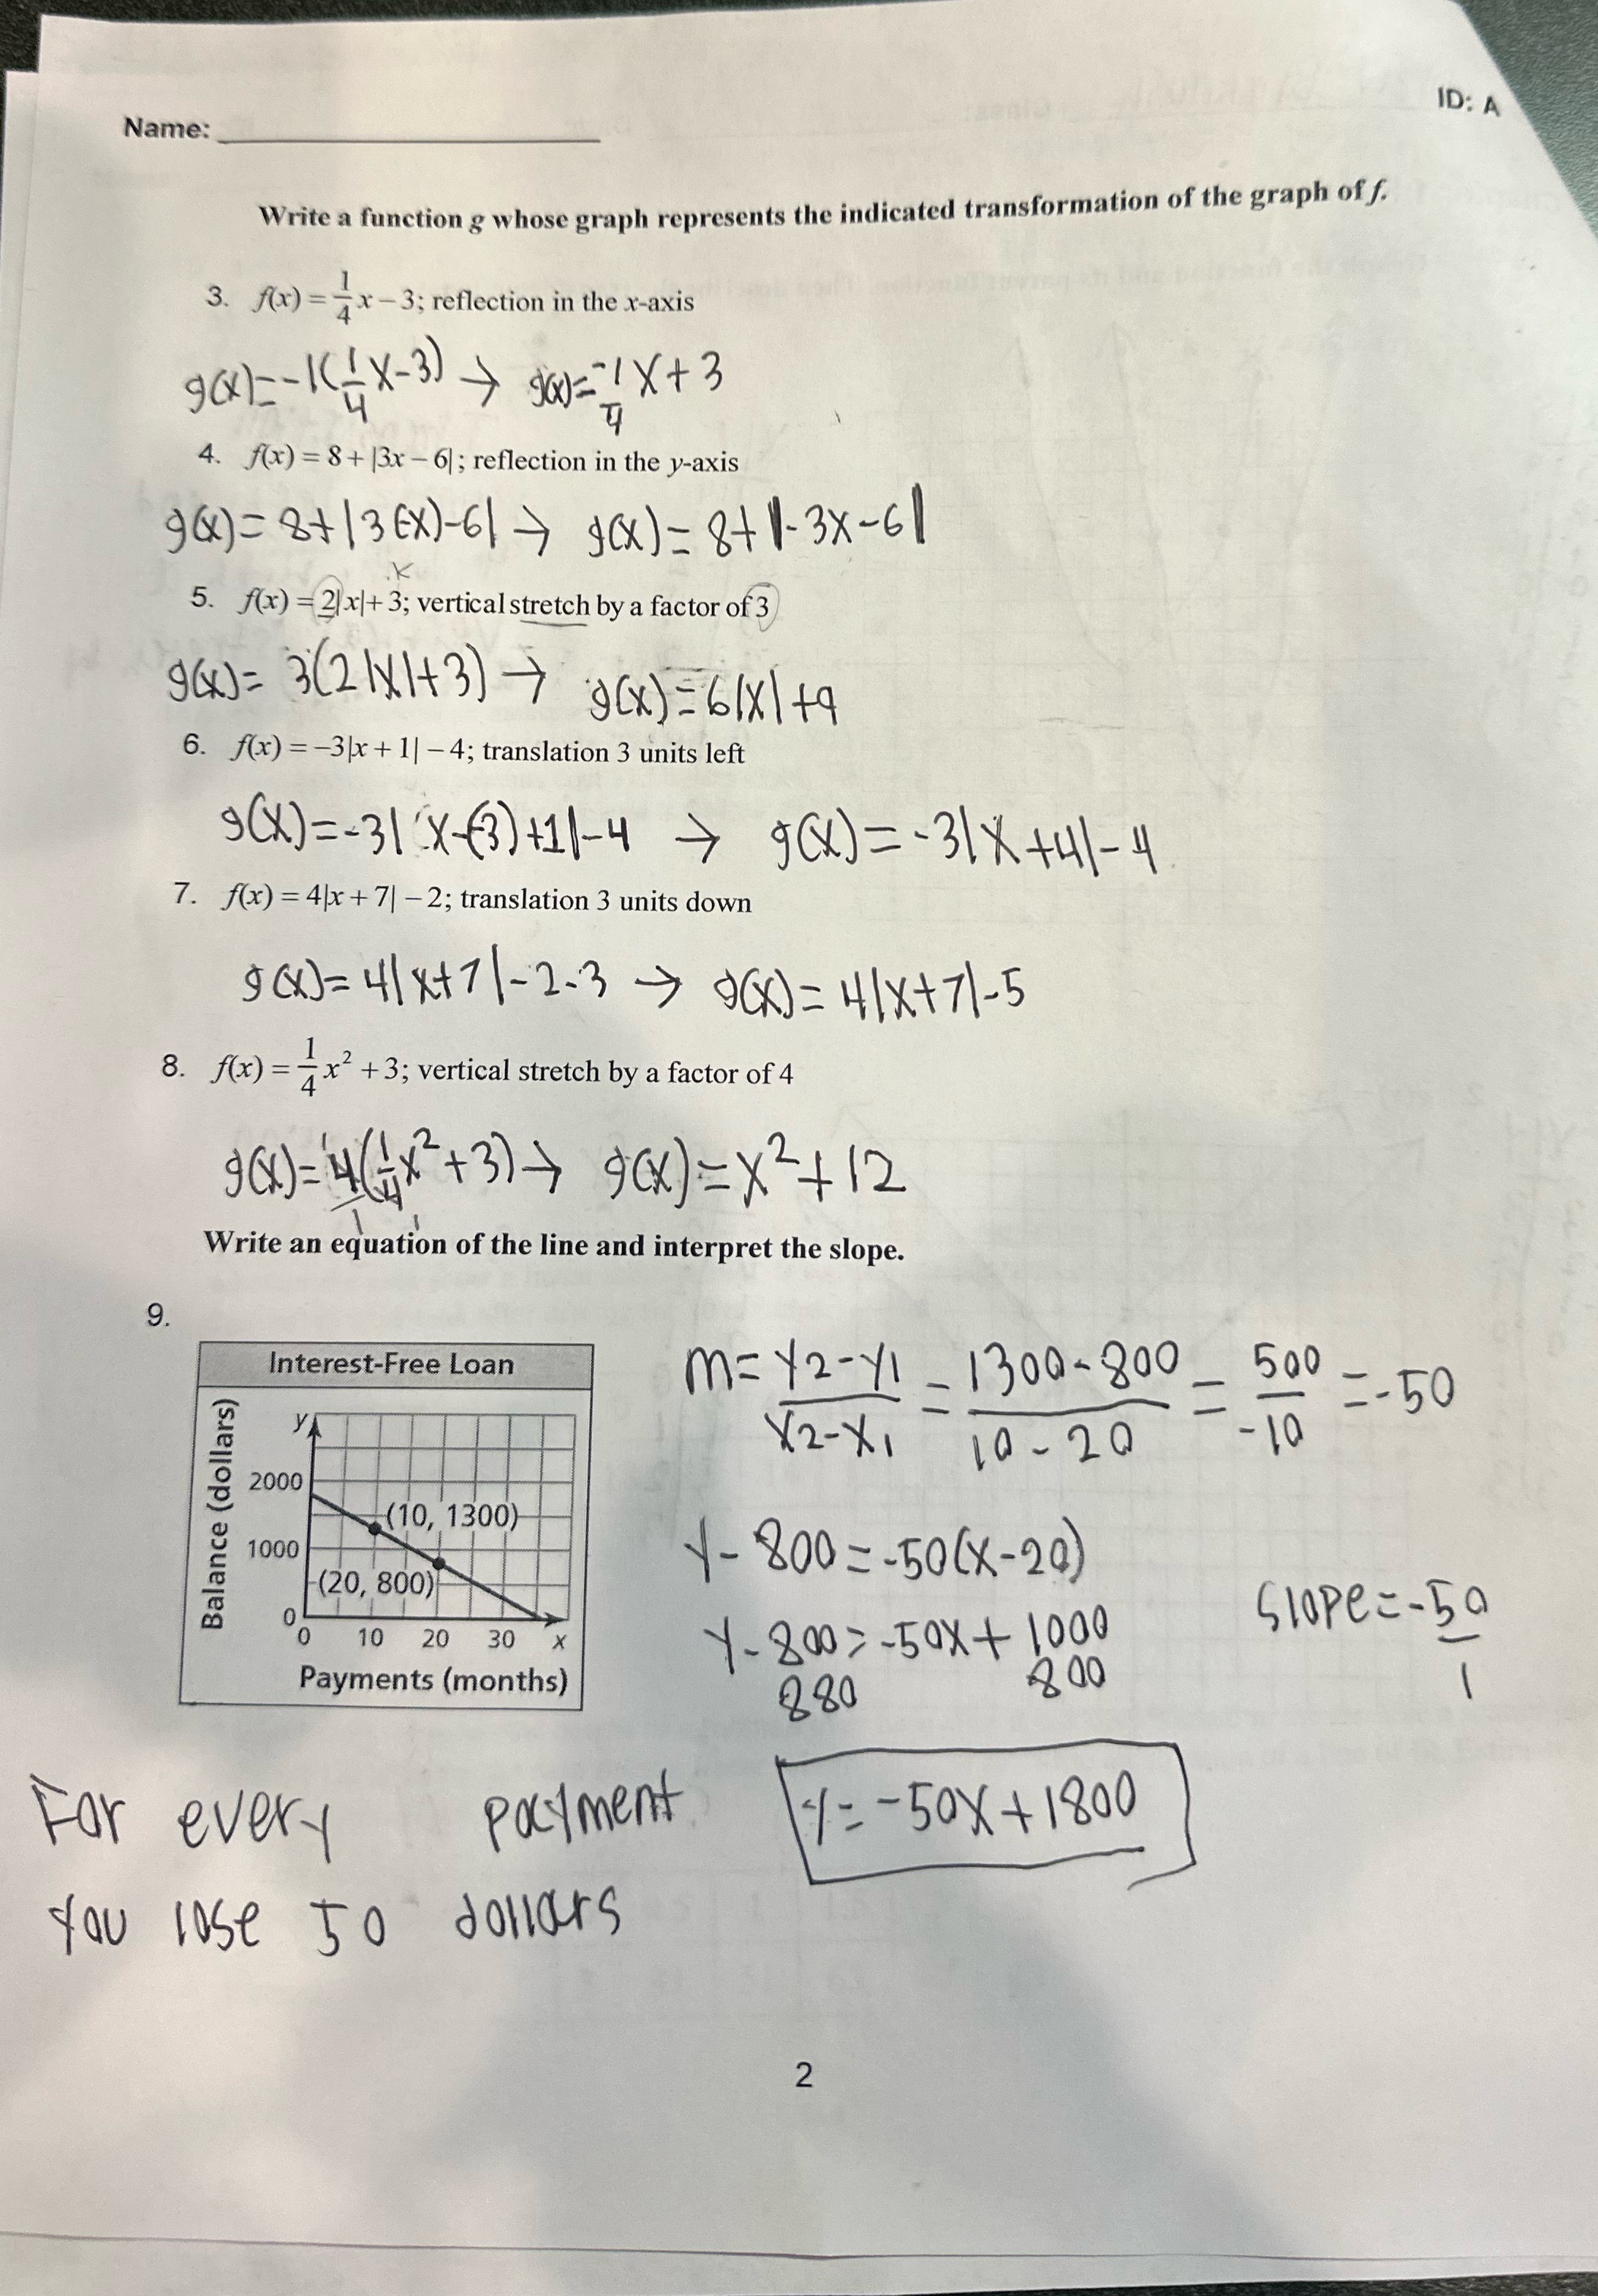 ID: A
Name:
Write a function g whose graph represents the indicated transformation of the graph of f.
3. f(x) = 1/4 x – 3; reflection in the x-axis
g(x)=-1(1/4 x-3) → g(x)=-1/4 x+3
4. f(x) = 8 + |3x – 6|; reflection in the y-axis
g(x)=8+|3(-x)-6| → g(x)=8+|-3x-6|
K
5. f(x) = 2|x| + 3; vertical stretch by a factor of 3
g(x)= 3(2|x|+3) → g(x)=6|x|+9
6. f(x) = –3|x + 1| – 4; translation 3 units left
g(x)=-3|x-(-3)+1|-4 → g(x)=-3|x+4|-4
7. f(x) = 4|x + 7| – 2; translation 3 units down
g(x)=4|x+7|-2-3 → g(x)=4|x+7|-5
8. f(x) = 1/4 x² + 3; vertical stretch by a factor of 4
g(x)=4(1/4 x²+3) → g(x)=x²+12
Write an equation of the line and interpret the slope.
9.
Interest-Free Loan
Balance (dollars)
y
2000
1000
0
(10, 1300)
(20, 800)
0 10 20 30 x
Payments (months)
m=y2-y1/x2-x1 = 1300-800/10-20 = 500/-10 = -50
y-800=-50(x-20)
y-800=-50x+1000
880 800
Slope=-50/1
y=-50x+1800
For every payment
you lose 50 dollars
2